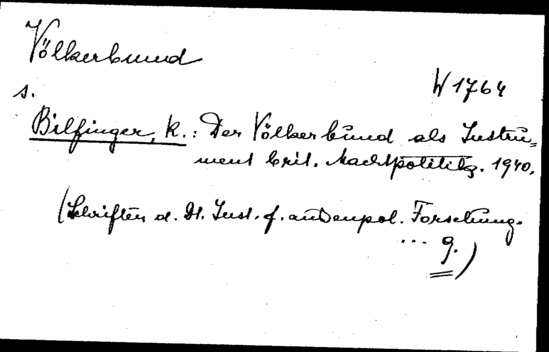 Völkerbund
W 1764
s.
Bilfinger, K.: Der Völkerbund als Instru-
ment brit. Machtpolitik. 1940.
(Schriften d. Dt. Inst. f. außenpol. Forschung.
... 9.)